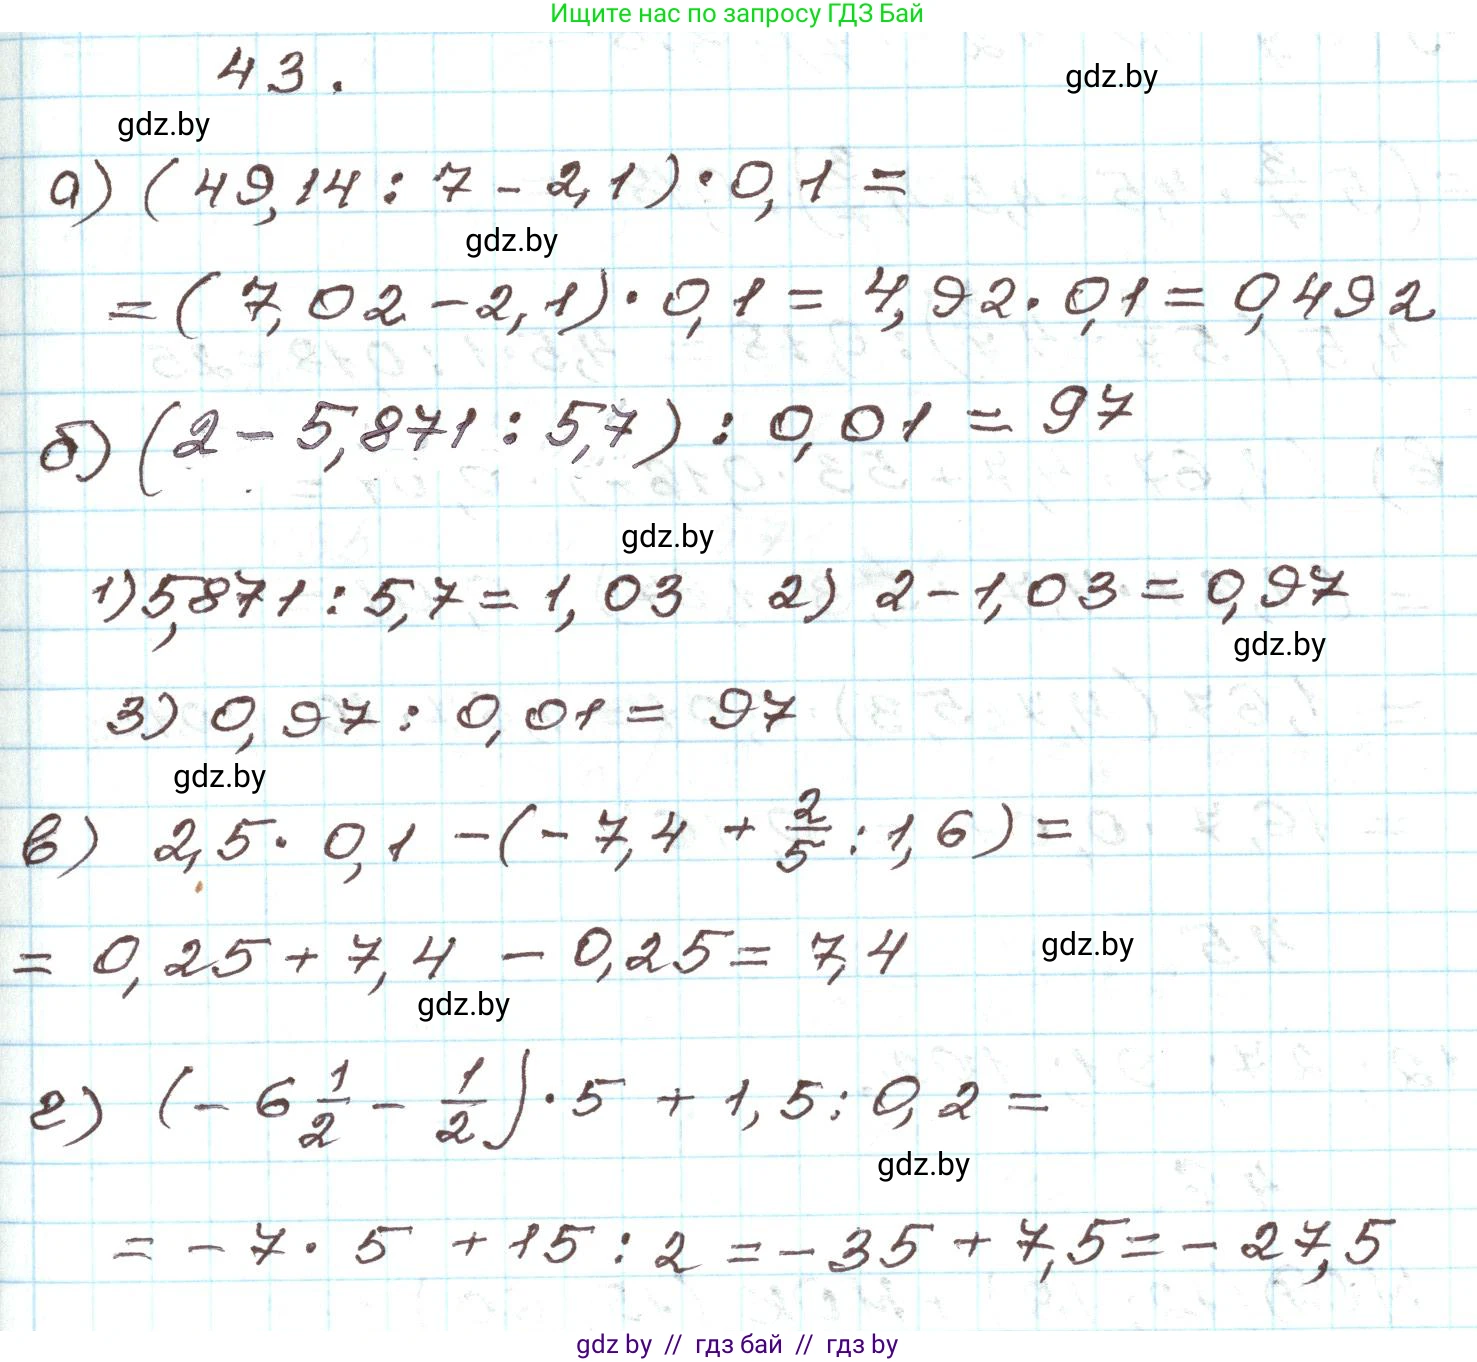 Ищите нас по запросу ГДЗ Бай
43.
gdz.by
gdz.by
а) (49,14 : 7 - 2,1) · 0,1 =
gdz.by
= (7,02 - 2,1) · 0,1 = 4,92 · 0,1 = 0,492
б) (2 - 5,871 : 5,7) : 0,01 = 97
gdz.by
1) 5,871 : 5,7 = 1,03 2) 2 - 1,03 = 0,97
gdz.by
3) 0,97 : 0,01 = 97
gdz.by
в) 2,5 · 0,1 - (- 7,4 + 2/5 : 1,6) =
= 0,25 + 7,4 - 0,25 = 7,4
gdz.by
gdz.by
г) (- 6 1/2 - 1/2) · 5 + 1,5 : 0,2 =
gdz.by
= - 7 · 5 + 15 : 2 = - 35 + 7,5 = - 27,5
gdz by // гдз бай // гдз by